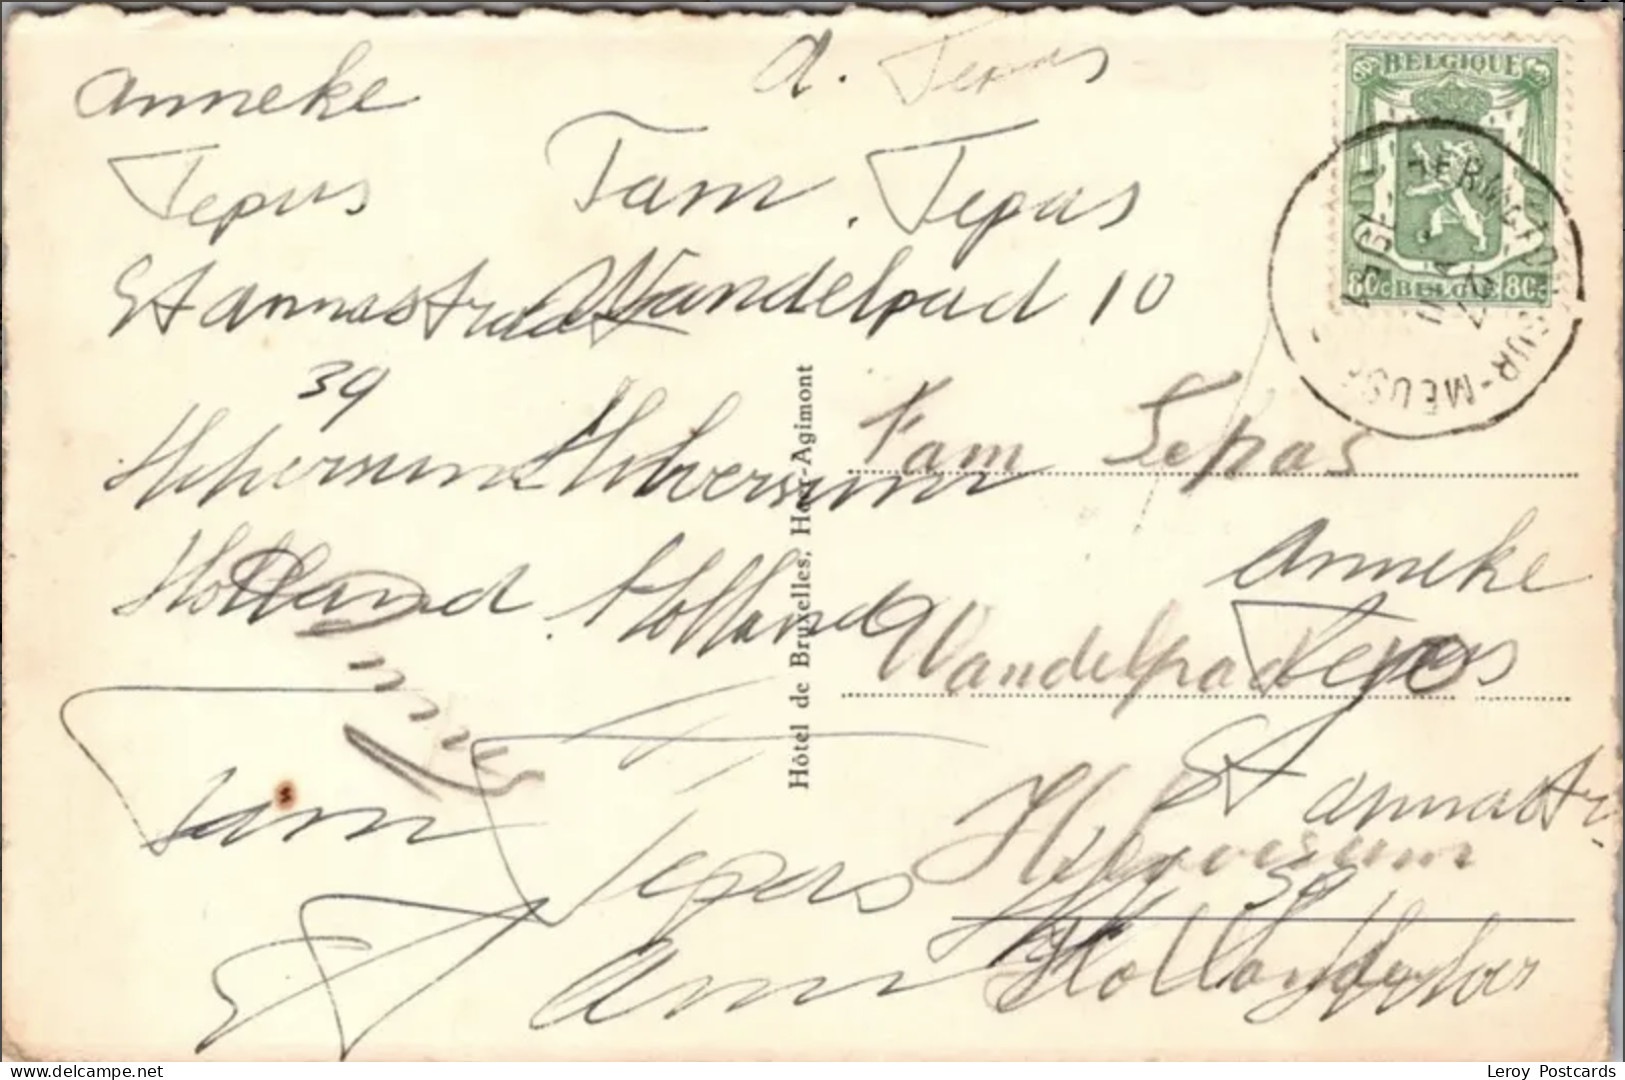 Anneke
Tepus
St Annastraat
39
Hilversum
Holland
a. Tepas
Fam. Tepas
Wandelpad 10
Hilversum
Holland
BELGIQUE
80c BELGIE 80c
SUR-MEUSE
Hôtel de Bruxelles, Heer-Agimont
Fam Tepas
Anneke
Tepas
Wandelpad
St Annastr
Hilversum
39
Holland
Fam
Tepas
St Ann
delcampe.net
Leroy Postcards